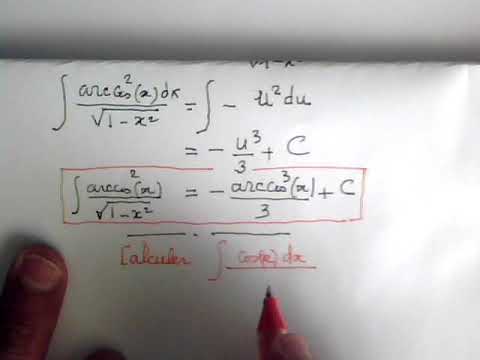 ∫ arccos²(x)dx / √1-x² = ∫ - u² du
= - u³/3 + C
∫ arccos²(x) / √1-x² = - arccos³(x) / 3 + C
Calculer ∫ cos(x) dx